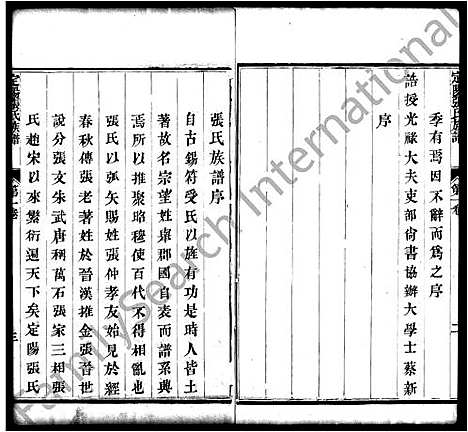 季有焉因不辭而為之序
誥授光祿大夫吏部尙書協辦大學士蔡新
序
定陽張氏族譜
第一卷
二
張氏族譜序
自古錫符受氏以旌有功是時人皆土
著故名宗望姓舉郡國自表而譜系興
焉所以推聚昭穆使百代不得相亂也
張氏以弧矢賜姓張仲孝友始見於經
春秋傳張老著姓於晉漢推金張晉世
說分張文朱武唐稱萬石張家三相張
氏趙宋以來繁衍遍天下矣定陽張氏
定陽張氏族譜
第一卷
三
FamilySearch International